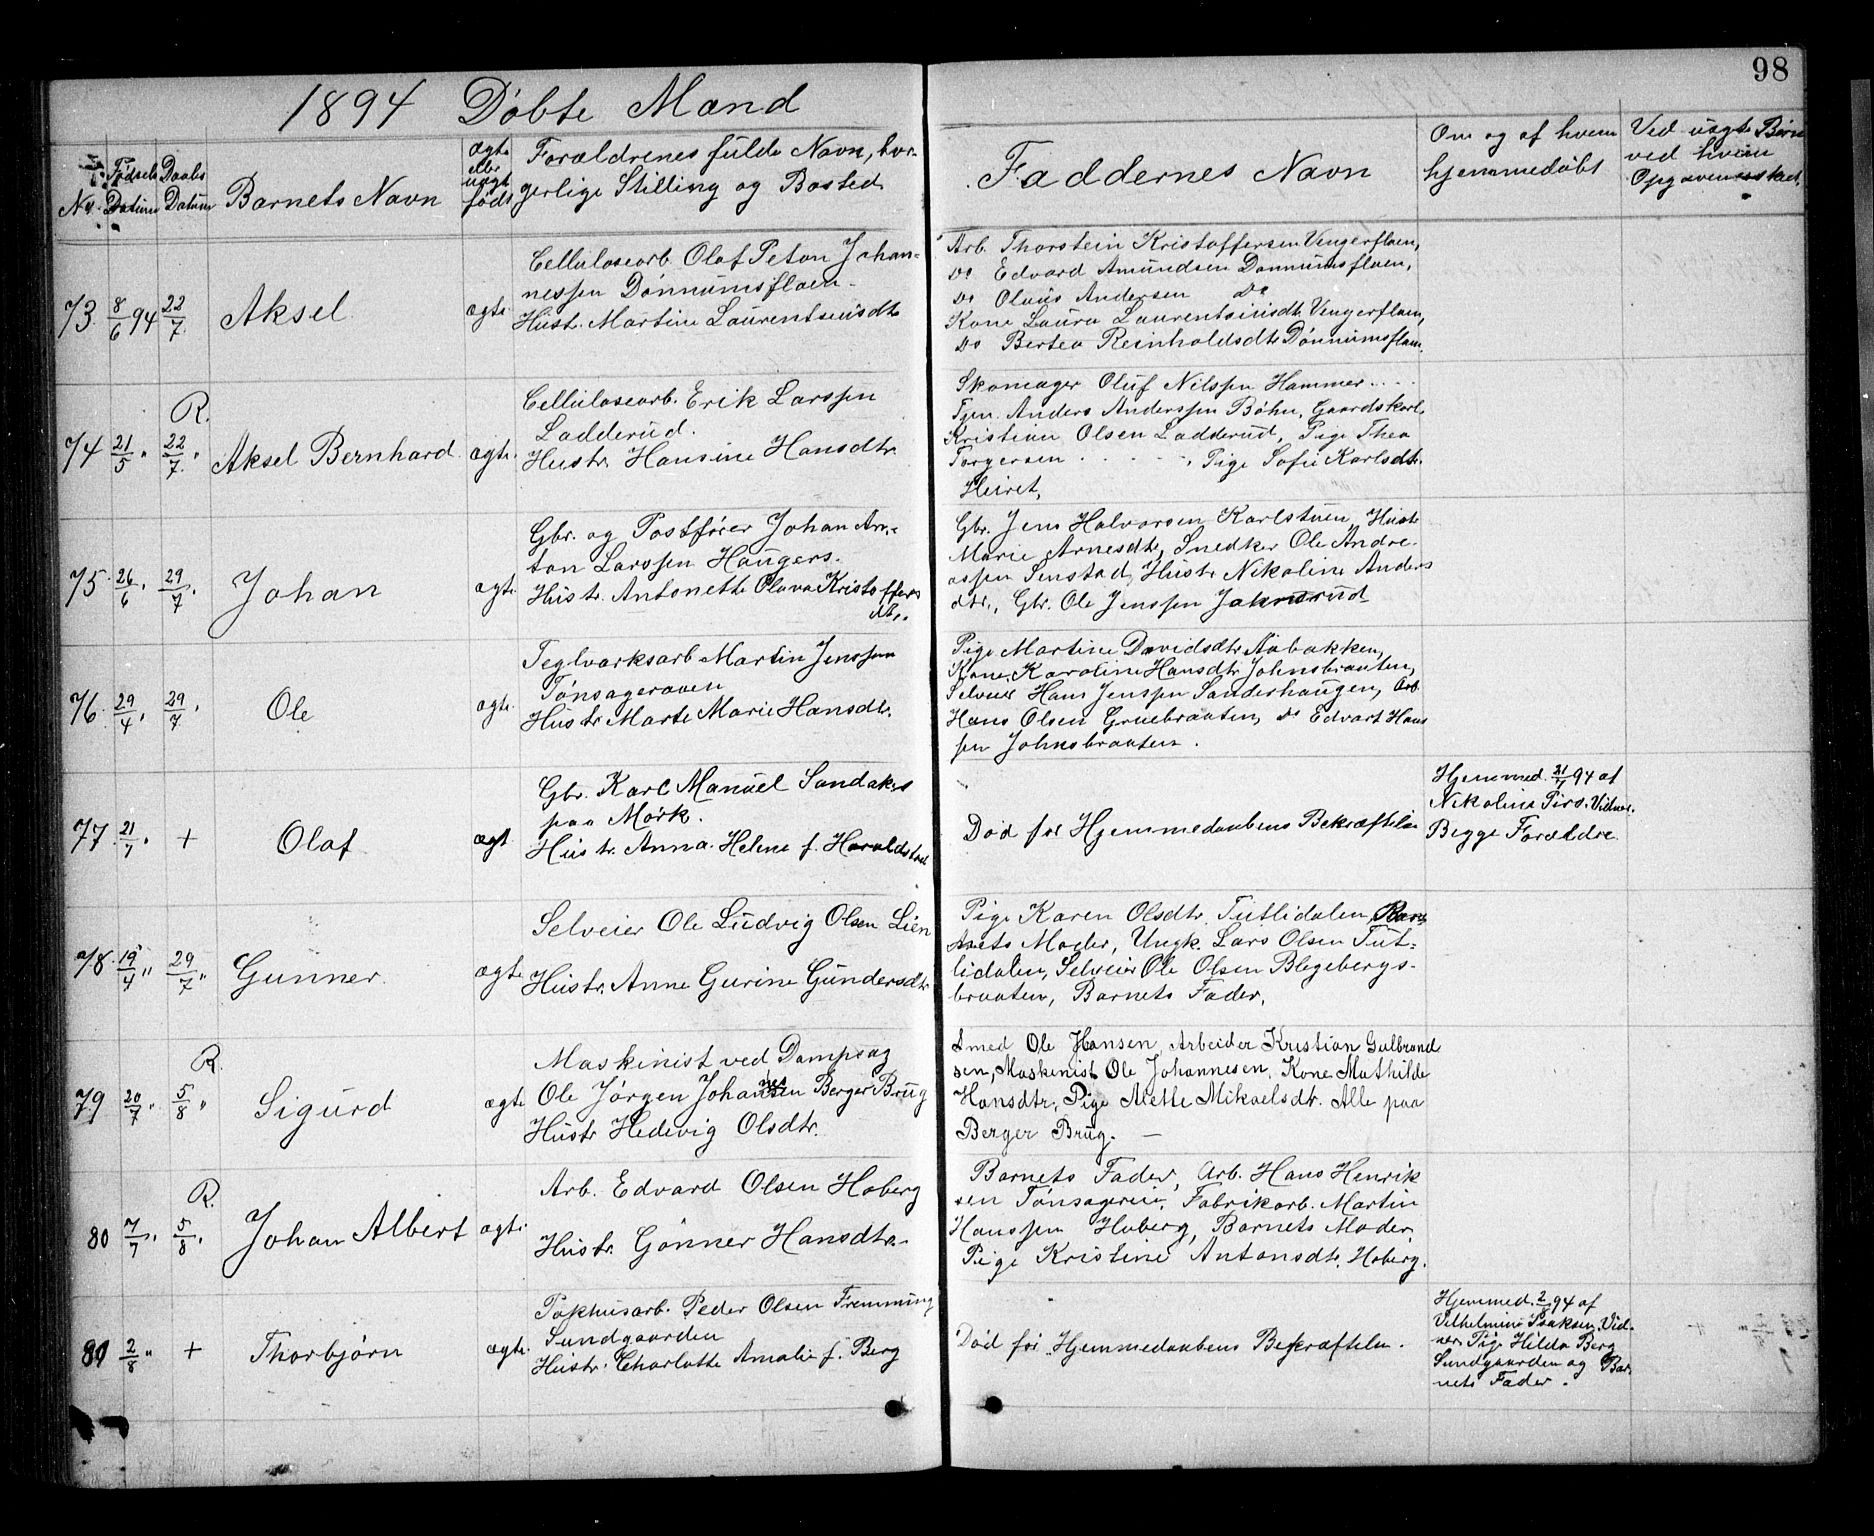 98
1894 Døbte Mænd
No. Fødsels Datum Daabs Datum Barnets Navn ægte eller uægt. født Forældrenes fulde Navn, bor-
gerlige Stilling og Bosted
Faddernes Navn
Om og af hvem
hjemmedøbt
Ved uægte Børn
ved hvem
73. 8/6 94 22/7. Aksel. ægte.
Cellulosearb. Olaf Peton Johan-
nessen Dønnumsflaen.
Hustr. Martine Laurentsiusdtr
Arb. Thorstein Kristoffersen Vengerflaen,
Do Edvard Amundsen Dønnumsflaen,
Do Olaus Andersen Do
Kone Laura Laurentsiusdtr Vengerflaen,
Do Bertea Reinholdsdtr Dønnumsflaen.
R.
74 21/5 " 22/7. " Aksel Bernhard ægte.
Celluloseorb. Erik Larssen
Ladderud.
Hustr. Hansine Hansdtr.
Skomager Oluf Nilssen Hammer
Tjen. Anders Anderssen Bøhn, Gaardskarl.
Kristian Olsen Ladderud, Pige Thea
Torgersen , Pige Sofie Karlsdtr.
75 26/6. 29/7. Johan ægte.
Gbr. og Postfører Johan An-
ton Larssen Haugers.
Hustr. Antonette Olava Kristoffers
dtr.
Gbr. Jens Halvorsen Karlstuen, Hustr
Marie Arnesdtr, Snedker Ole Andre-
assen Senstad, Hustr Nikoline Anders
dtr., Gbr. Ole Jenssen
76. 29/4. 29/7. Ole ægte.
Teglværksarb Martin Jenssen
Tønsageraaen
Hustr Marte Marie Hansdtr.
Pige Martine Davidsdtr Aabakken,
Kone Karoline Hansdtr Johnsbraaten,
Selveier Hans Jenssen Sanderhaugen, Arb.
Hans Olsen Gruebraaten, Do Edvart Hans
sen Johnsbraaten.
77. 21/7. + Olaf ægt
Gbr. Karl Manuel Sandaker
paa Mørk.
Hustr. Anna Helene f. Haraldstad
Død før Hjemmedaabens Bekræftelse
Hjemmed. 21/7 94 af
Nikoline Virs. Vidner.
Begge Forældre.
78. 19/4 " 29/7 " Gunner. ægte
Selveier Ole Ludvig Olsen Lien
Hustr. Anne Gurine Gundersdtr
Pige Karen Olsdtr. Tutlidalen, Bar-
nets Moder, Ungk. Lars Olsen Tut-
lidalen, Selveier Ole Olsen Blegebergs-
braaten, Barnets Fader.
R.
79 20/7 " 5/8 " Sigurd ægte
Maskinist ved Dampsag
Ole Jørgen Johannesen Berger Brug
Hustr Hedevig Olsdtr.
Smed Ole Hansen, Arbeider Kristian Gulbrand
sen, Maskinist Ole Johannesen, Kone Mathilde
Hansdtr, Pige Mette Mikaelsdtr. Alle paa
Berger Brug. —
R.
80 7/7. " 5/8. Johan Albert ægte.
Arb. Edvard Olsen Hoberg
Hustr. Gønner Hansdtr.
Barnets Fader, Arb. Hans Henrik
sen Tønsagereie, Fabrikarb. Martin
Hanssen Hoberg, Barnets Moder,
Pige Kristine Antonsdtr. Hoberg.
81 2/8 " + Thorbjørn ægte.
Pakhusarb. Peder Olsen Fremming
Sundgaarden
Hustr. Charlotte Amalie f. Berg
Død før Hjemmedaabens Bekræftelse.
Hjemmed. 2/8 94 af
Vilhelmine Isaksen, Vid-
ner Pige Hilda Berg
Sundgaarden og Bar-
nets Fader.